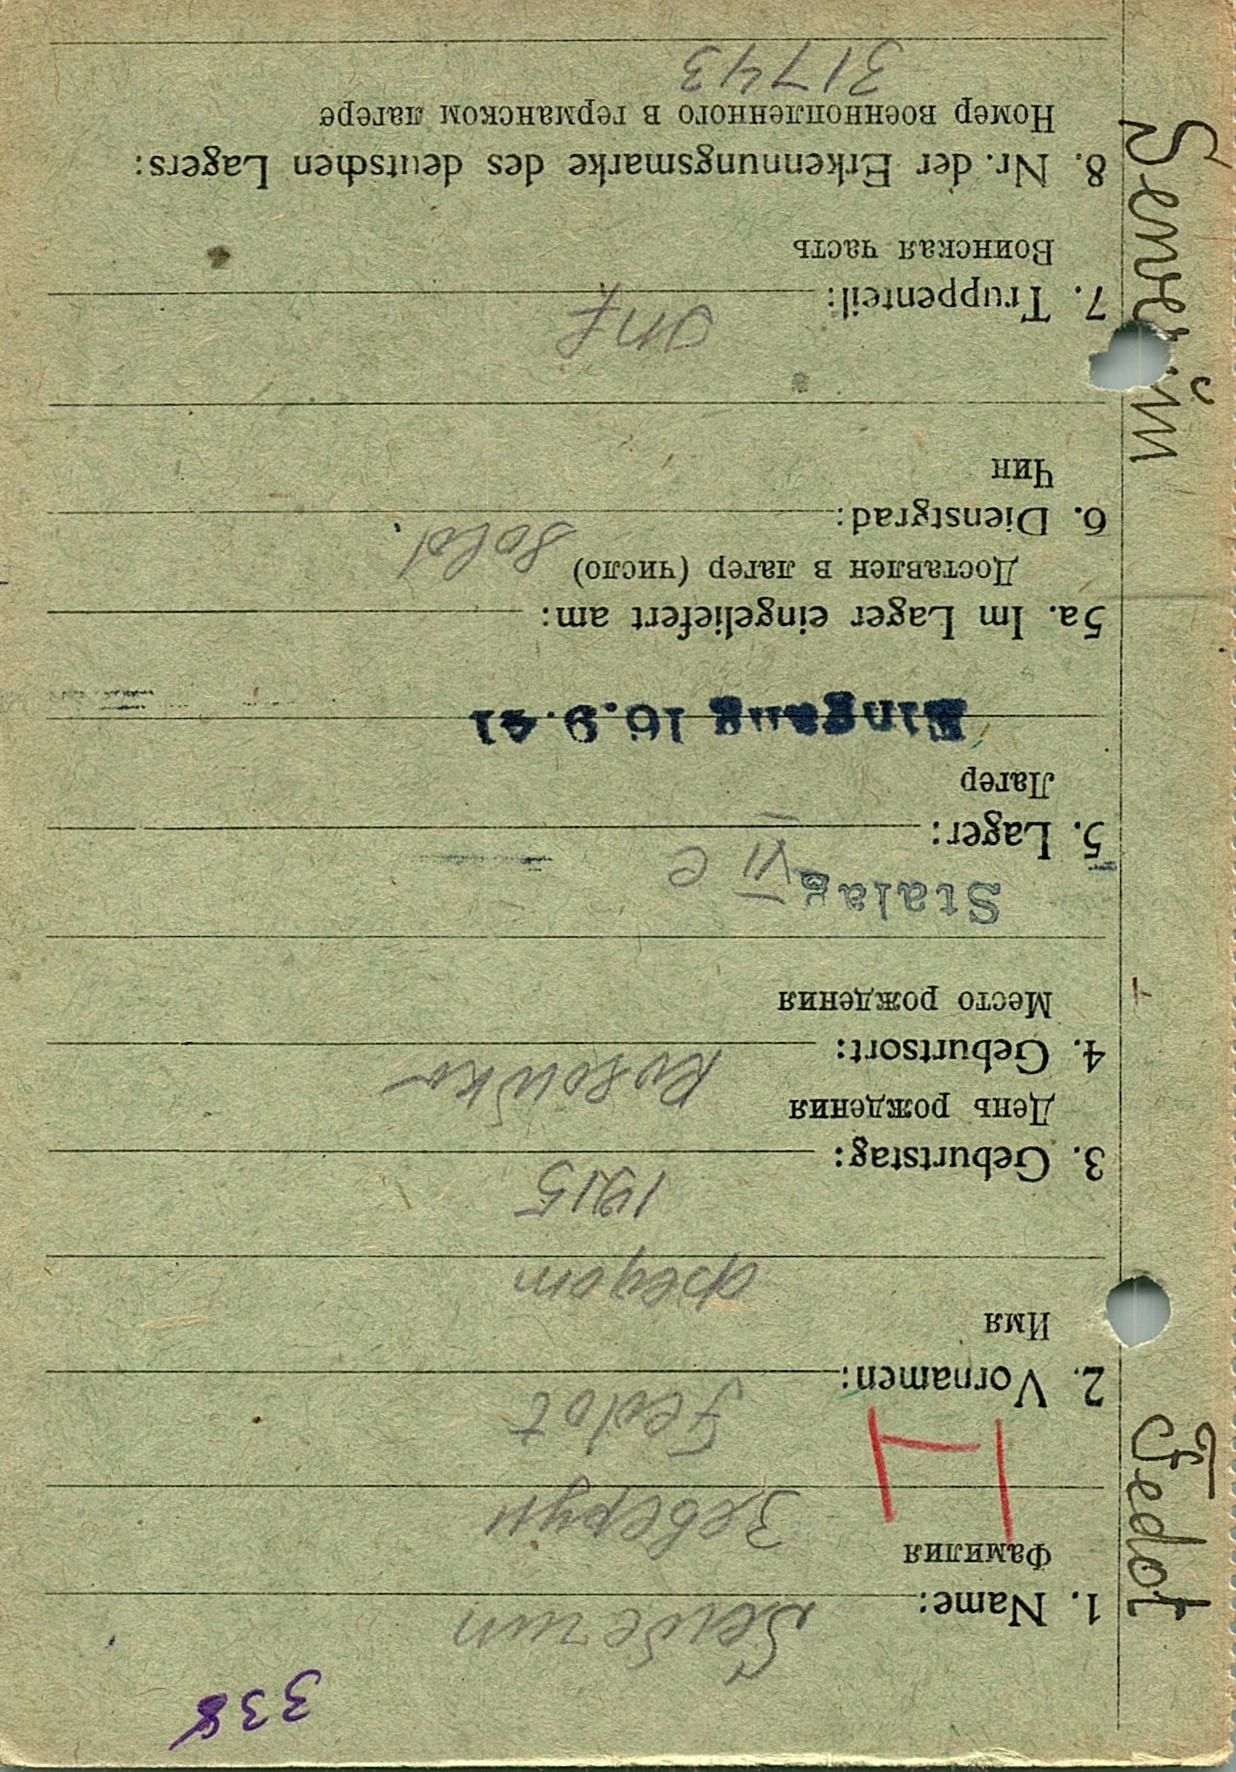 338
1. Name: Sewerun
Фамилия Зеверун
H
2. Vornamen: Fedot
Имя Федот
3. Geburtstag: 1915
День рождения
4. Geburtsort:
Место рождения
5. Lager: Stalag VI C
Лагер
Eingang 16.9.41
5a. Im Lager eingeliefert am:
Доставлен в лагер (число)
6. Dienstgrad: Sold
Чин
7. Truppenteil: Inf
Воинская часть
8. Nr. der Erkennungsmarke des deutschen Lagers:
Номер военнопленного в германском лагере
31743
Fedot